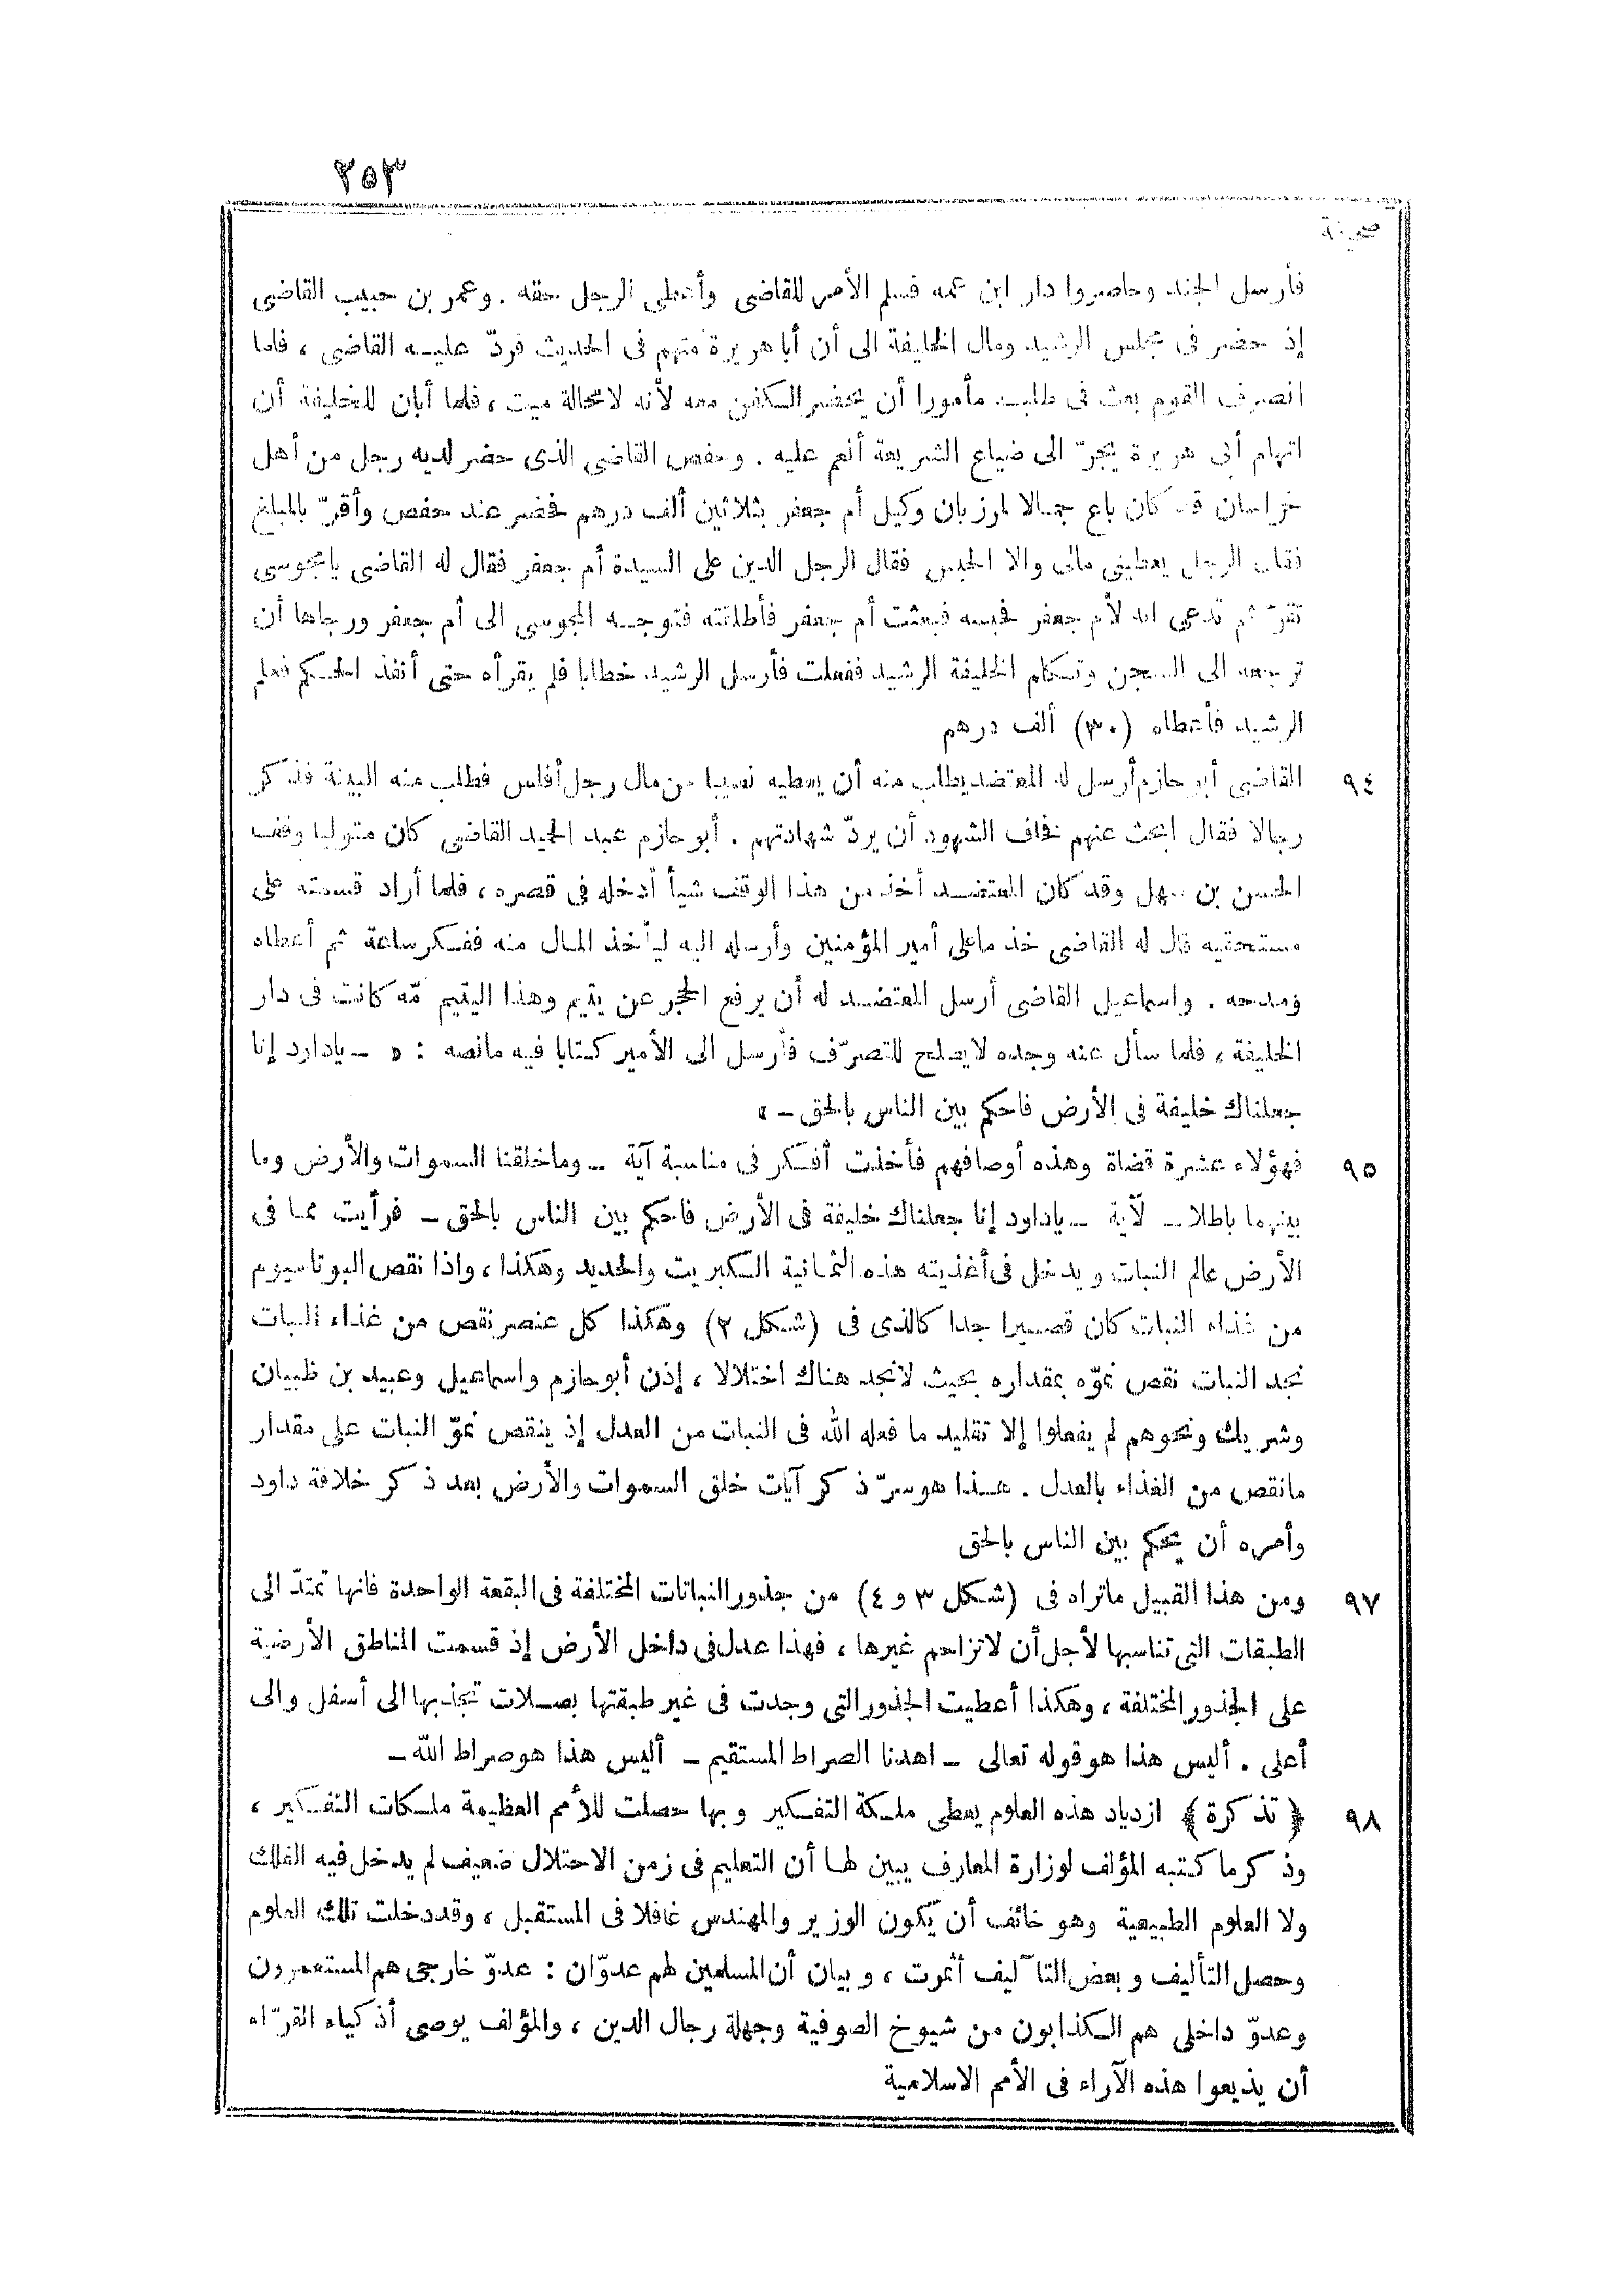 ٢٥٣
صحيفة
فأرسل الجند وحاصروا دار ابن عمه فسلم الأمر للقاضى وأعطى الرجل حقه . وعمر بن حبيب القاضى
إذ حضر فى مجلس الرشيد ومال الخليفة الى أن أبا هريرة متهم فى الحديث فردّ عليه القاضى ، فلما
انصرف القوم بعث فى طلبه مأمورا أن يحضر الكفن معه لأنه لامحالة ميت ، فلما أبان للخليفة أن
اتهام أبى هريرة يجرّ الى ضياع الشريعة أنعم عليه . وحفص القاضى الذى حضر لديه رجل من أهل
خراسان قد كان باع جمالا لمرزبان وكيل أم جعفر بثلاثين ألف درهم فحضر عند حفص وأقرّ بالمبلغ
فقال الرجل يعطينى مالى والا الحبس فقال الرجل الدين على السيدة أم جعفر فقال له القاضى يامجوسى
تقرّ ثم تدعى انه لأم جعفر فحبسه فبعثت أم جعفر فأطلقته فتوجه المجوسى الى أم جعفر ورجاها أن
ترجعه الى السجن وتكلم الخليفة الرشيد ففعلت فأرسل الرشيد خطابا فلم يقرأه حتى أنفذ الحكم فعلم
الرشيد فأعطاه (٣٠) ألف درهم
٩٤ القاضى أبو حازم أرسل له المعتضد يطلب منه أن يعطيه نصيبا من مال رجل أفلس فطلب منه البينة فذكر
رجالا فقال ابحث عنهم فخاف الشهود أن يردّ شهادتهم . أبو حازم عبد الحميد القاضى كان متوليا وقف
الحسن بن سهل وقد كان المعتضد أخذ من هذا الوقف شيأ أدخله فى قصره ، فلما أراد قسمته على
مستحقيه قال له القاضى خذ ماعلى أمير المؤمنين وأرسله اليه ليأخذ المال منه ففكر ساعة ثم أعطاه
ومدحه . واسماعيل القاضى أرسل المعتضد له أن يرفع الحجر عن يتيم وهذا اليتيم مّه كانت فى دار
الخليفة ، فلما سأل عنه وجده لايصلح للتصرّف فأرسل الى الأمير كتابا فيه مانصه : « ـ ياداود إنا
جعلناك خليفة فى الأرض فاحكم بين الناس بالحق ـ »
٩٥ فهؤلاء عشرة قضاة وهذه أوصافهم فأخذت أفكر فى مناسبة آية ـ وماخلقنا السموات والأرض وما
بينهما باطلا ـ لآية ـ ياداود إنا جعلناك خليفة فى الأرض فاحكم بين الناس بالحق ـ فرأيت مما فى
الأرض عالم النبات ويدخل فى أغذيته هذه الثمانية الكبريت والحديد وهكذا ، واذا نقص البوتاسيوم
من غذاء النبات كان قصيرا جدا كالذى فى (شكل ٢) وهكذا كل عنصر نقص من غذاء النبات
نجد النبات نقص نموّه بمقداره بحيث لانجد هناك اختلالا ، إذن أبو حازم واسماعيل وعبيد بن ظبيان
وشريك ونحوهم لم يفعلوا إلا تقليد ما فعله الله فى النبات من العدل إذ ينقص نموّ النبات على مقدار
مانقص من الغذاء بالعدل . هذا هو سرّ ذكر آيات خلق السموات والأرض بعد ذكر خلافة داود
وأمره أن يحكم بين الناس بالحق
٩٧ ومن هذا القبيل ماتراه فى (شكل ٣ و ٤) من جذور النباتات المختلفة فى البقعة الواحدة فانها تمتدّ الى
الطبقات التى تناسبها لأجل أن لاتزاحم غيرها ، فهذا عدل فى داخل الأرض إذ قسمت المناطق الأرضية
على الجذور المختلفة ، وهكذا أعطيت الجذور التى وجدت فى غير طبقتها بصلات تجذبها الى أسفل والى
أعلى . أليس هذا هو قوله تعالى ـ اهدنا الصراط المستقيم ـ أليس هذا هو صراط الله ـ
٩٨ ﴿ تذكرة ﴾ ازدياد هذه العلوم يعطى ملكة التفكير وبها حصلت للأمم العظيمة ملكات التفكير ،
وذكر ما كتبه المؤلف لوزارة المعارف يبين لها أن التعليم فى زمن الاحتلال ضعيف لم يدخل فيه الفلك
ولا العلوم الطبيعية وهو خائف أن يكون الوزير والمهندس غافلا فى المستقبل ، وقد دخلت تلك العلوم
وحصل التأليف وبعض التآليف أثمرت ، وبيان أن المسلمين لهم عدوّان : عدوّ خارجى هم المستعمرون
وعدوّ داخلى هم الكذابون من شيوخ الصوفية وجهلة رجال الدين ، والمؤلف يوصى أذكياء القرّاء
أن يذيعوا هذه الآراء فى الأمم الاسلامية